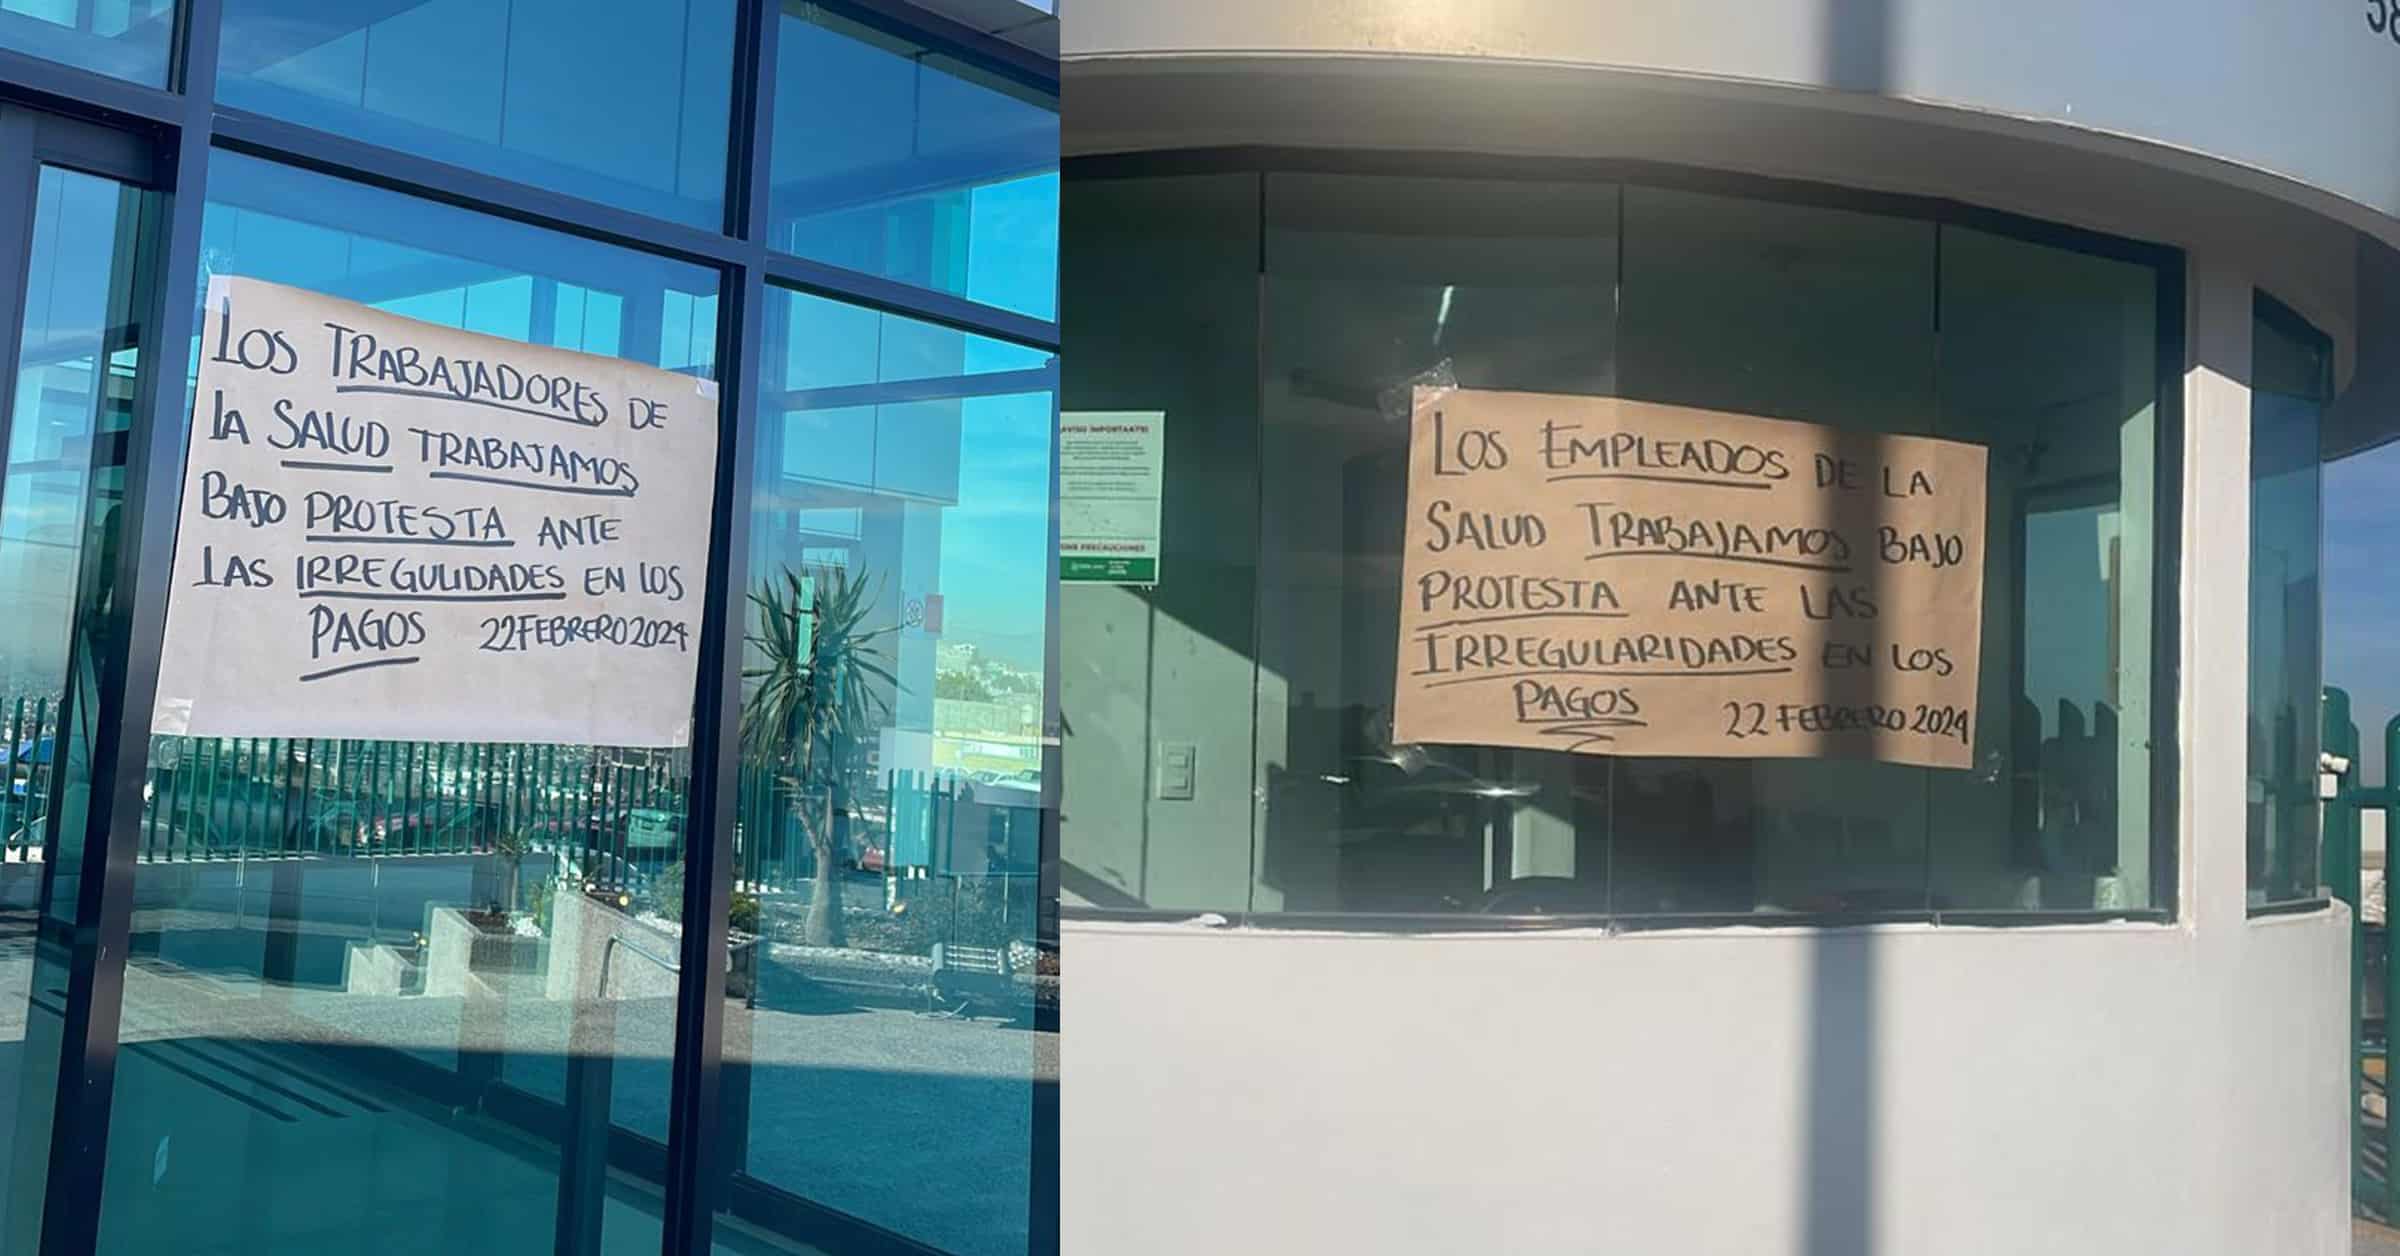 LOS TRABAJADORES DE
LA SALUD TRABAJAMOS
BAJO PROTESTA ANTE
LAS IRREGULIDADES EN LOS
PAGOS 22 FEBRERO 2024
LOS EMPLEADOS DE LA
SALUD TRABAJAMOS BAJO
PROTESTA ANTE LAS
IRREGULARIDADES EN LOS
PAGOS 22 FEBRERO 2024
¡AVISO IMPORTANTE!